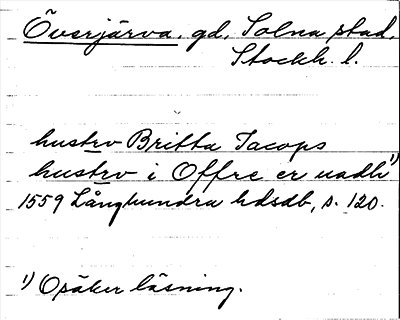 Överjärva, gd, Solna stad,
Stockh. l.
hustrv Britta Jacops
hustrv i Offre er uadh 1)
1559 Långhundra hdsdb, s. 120.
1) Osäker läsning.